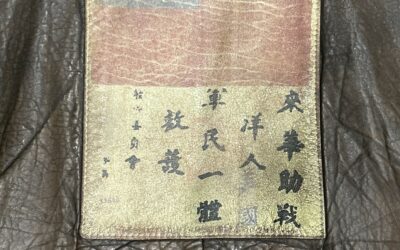 來華助戰
洋人美國
軍民一體
救護
委員會